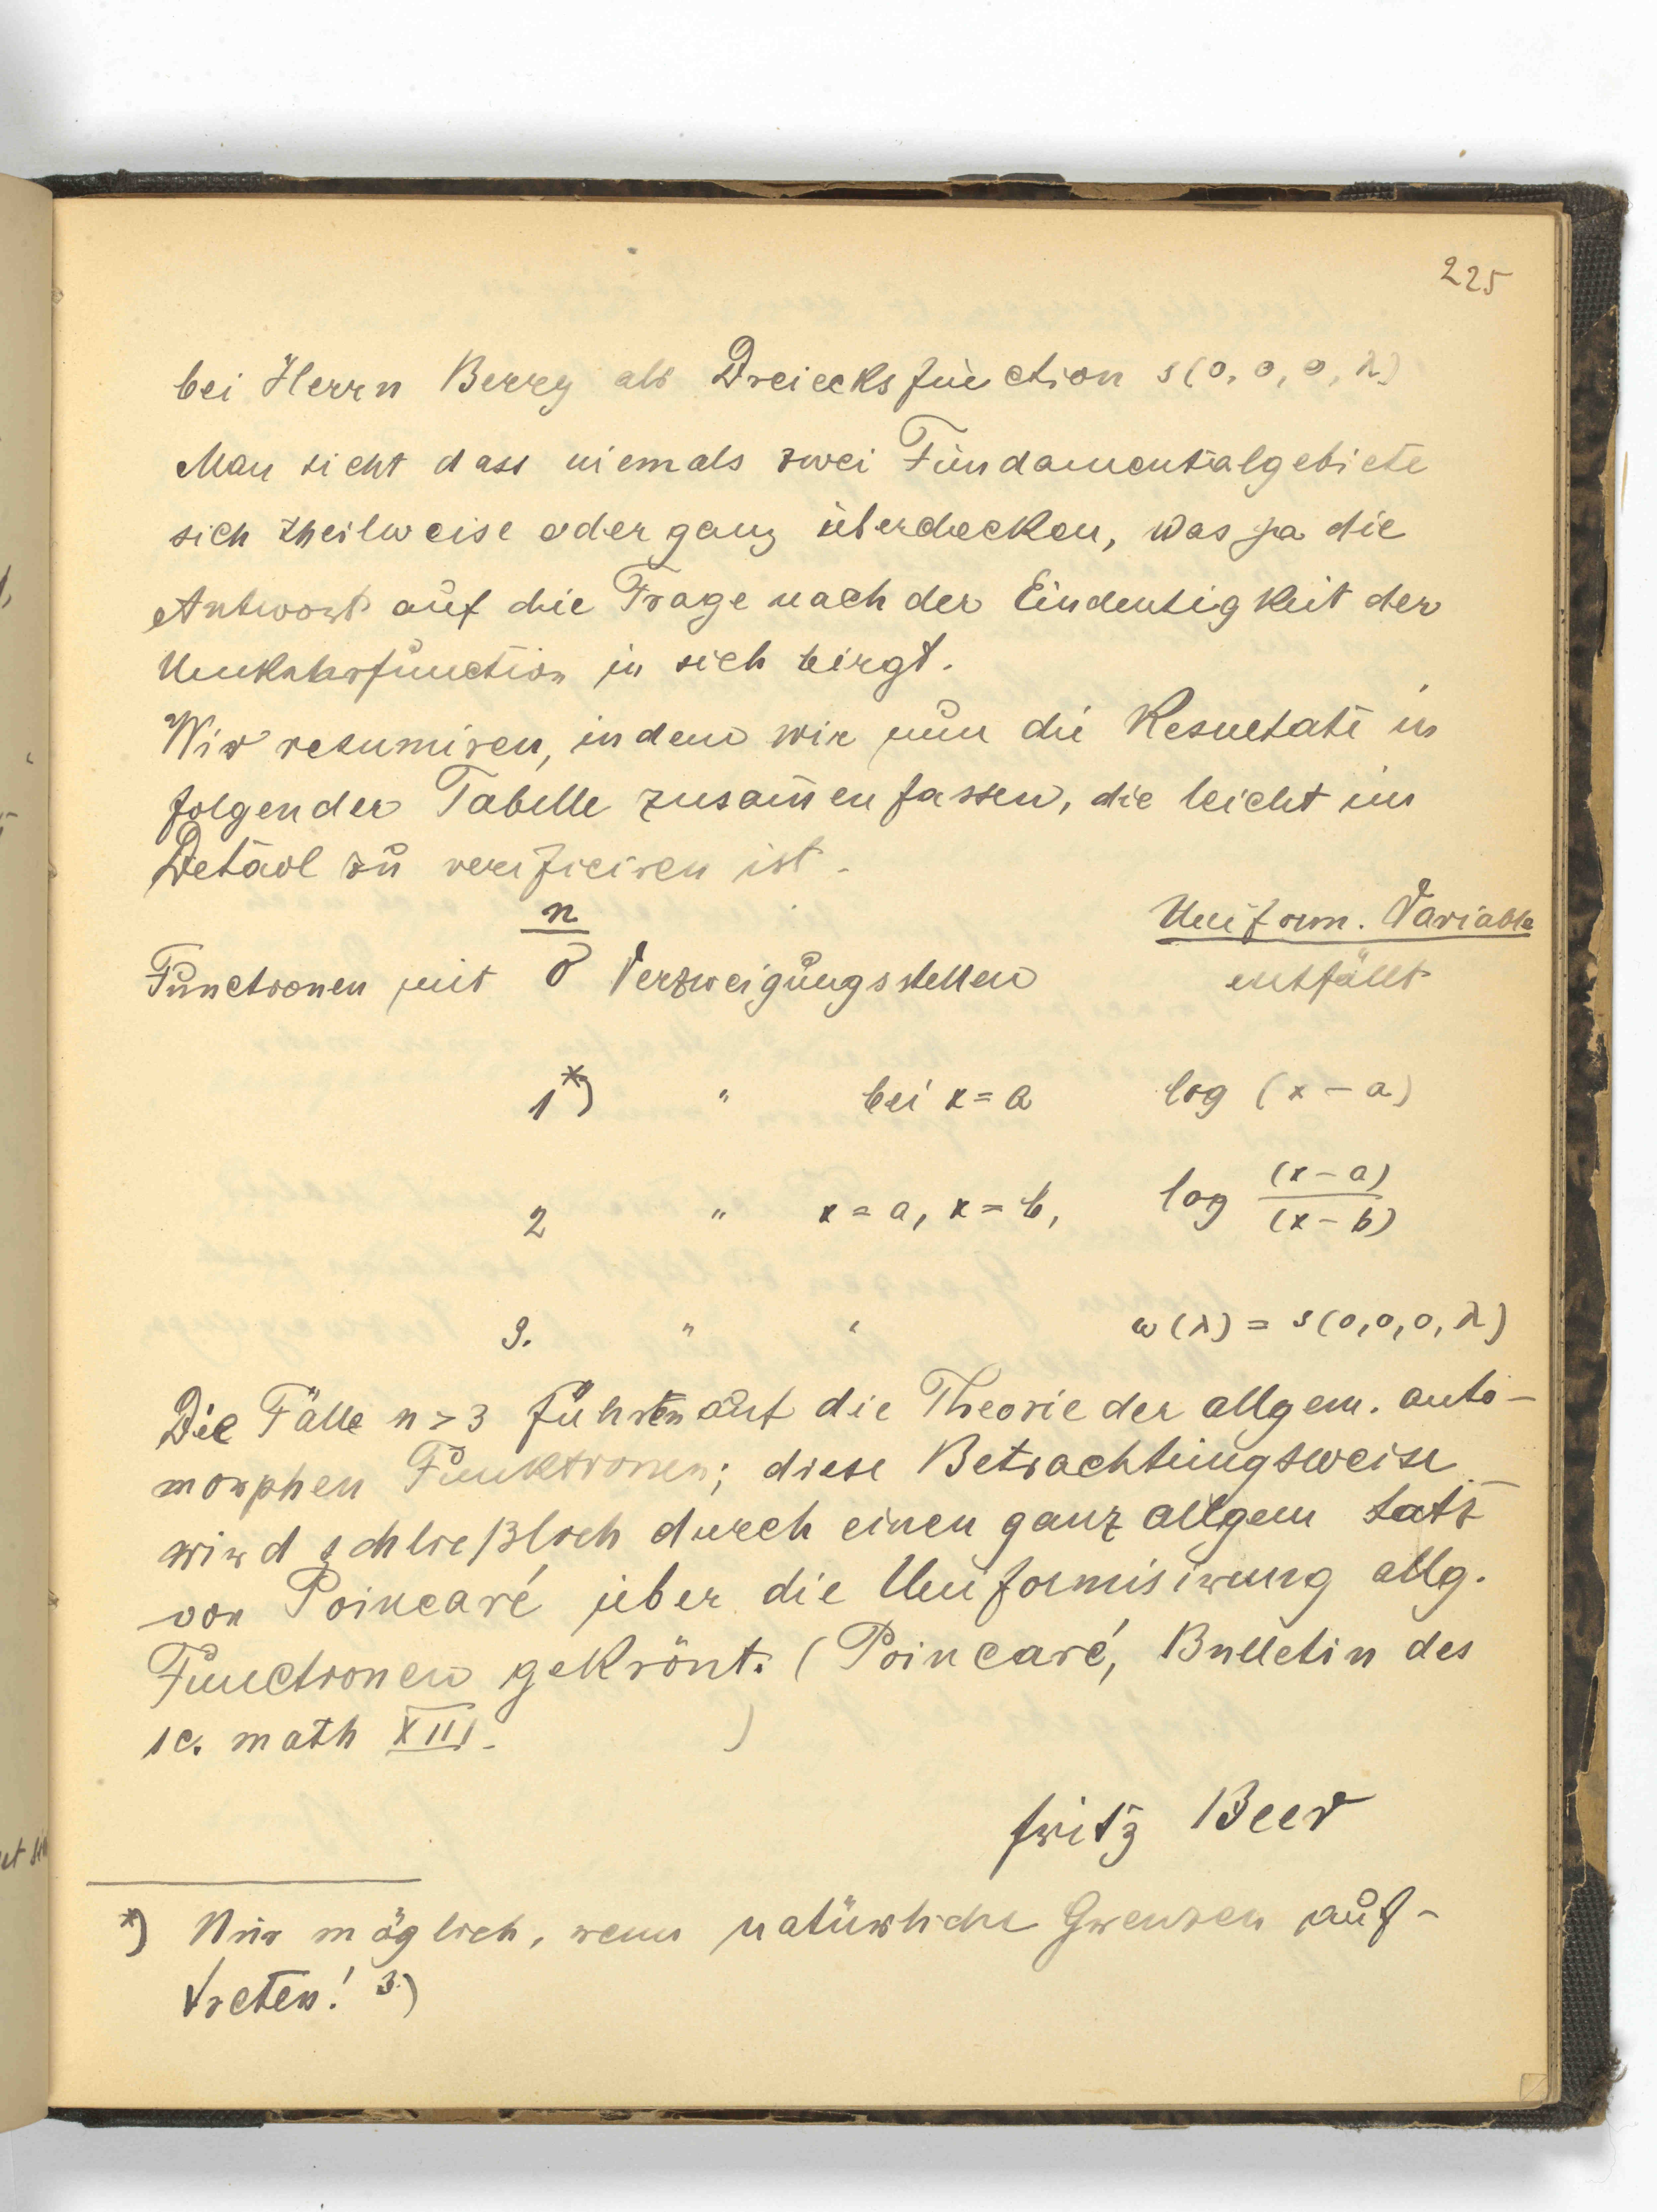 225
bei Herrn Berry als Dreiecksfunction s(0, 0, 0, λ)
Man sieht dass niemals zwei Fundamentalgebiete
sich theilweise oder ganz überdecken, was ja die
Antwort auf die Frage nach der Eindeutigkeit der
Umkehrfunction in sich birgt.
Wir resumiren, indem wir nun die Resultate in
folgender Tabelle zusam̄enfassen, die leicht im
Detail zu verificiren ist.
n Uniform. Variable
Functionen mit 0 Verzweigungsstellen entfällt
1*) " bei x = a log (x - a)
2 " x = a, x = b, log (x-a)/(x-b)
3. " " ω(λ) = s(0,0,0, λ)
Die Fälle n > 3 führen auf die Theorie der allgem. auto-
morphen Funktionen; diese Betrachtungsweise
wird schließlich durch einen ganz allgem Satz
von Poincaré über die Uniformisirung allg.
Functionen gekrönt. (Poincaré, Bulletin des
sc. math XIII. )
Fritz Beer
*) Nur möglich, wenn natürliche Grenzen auf-
treten! 3)